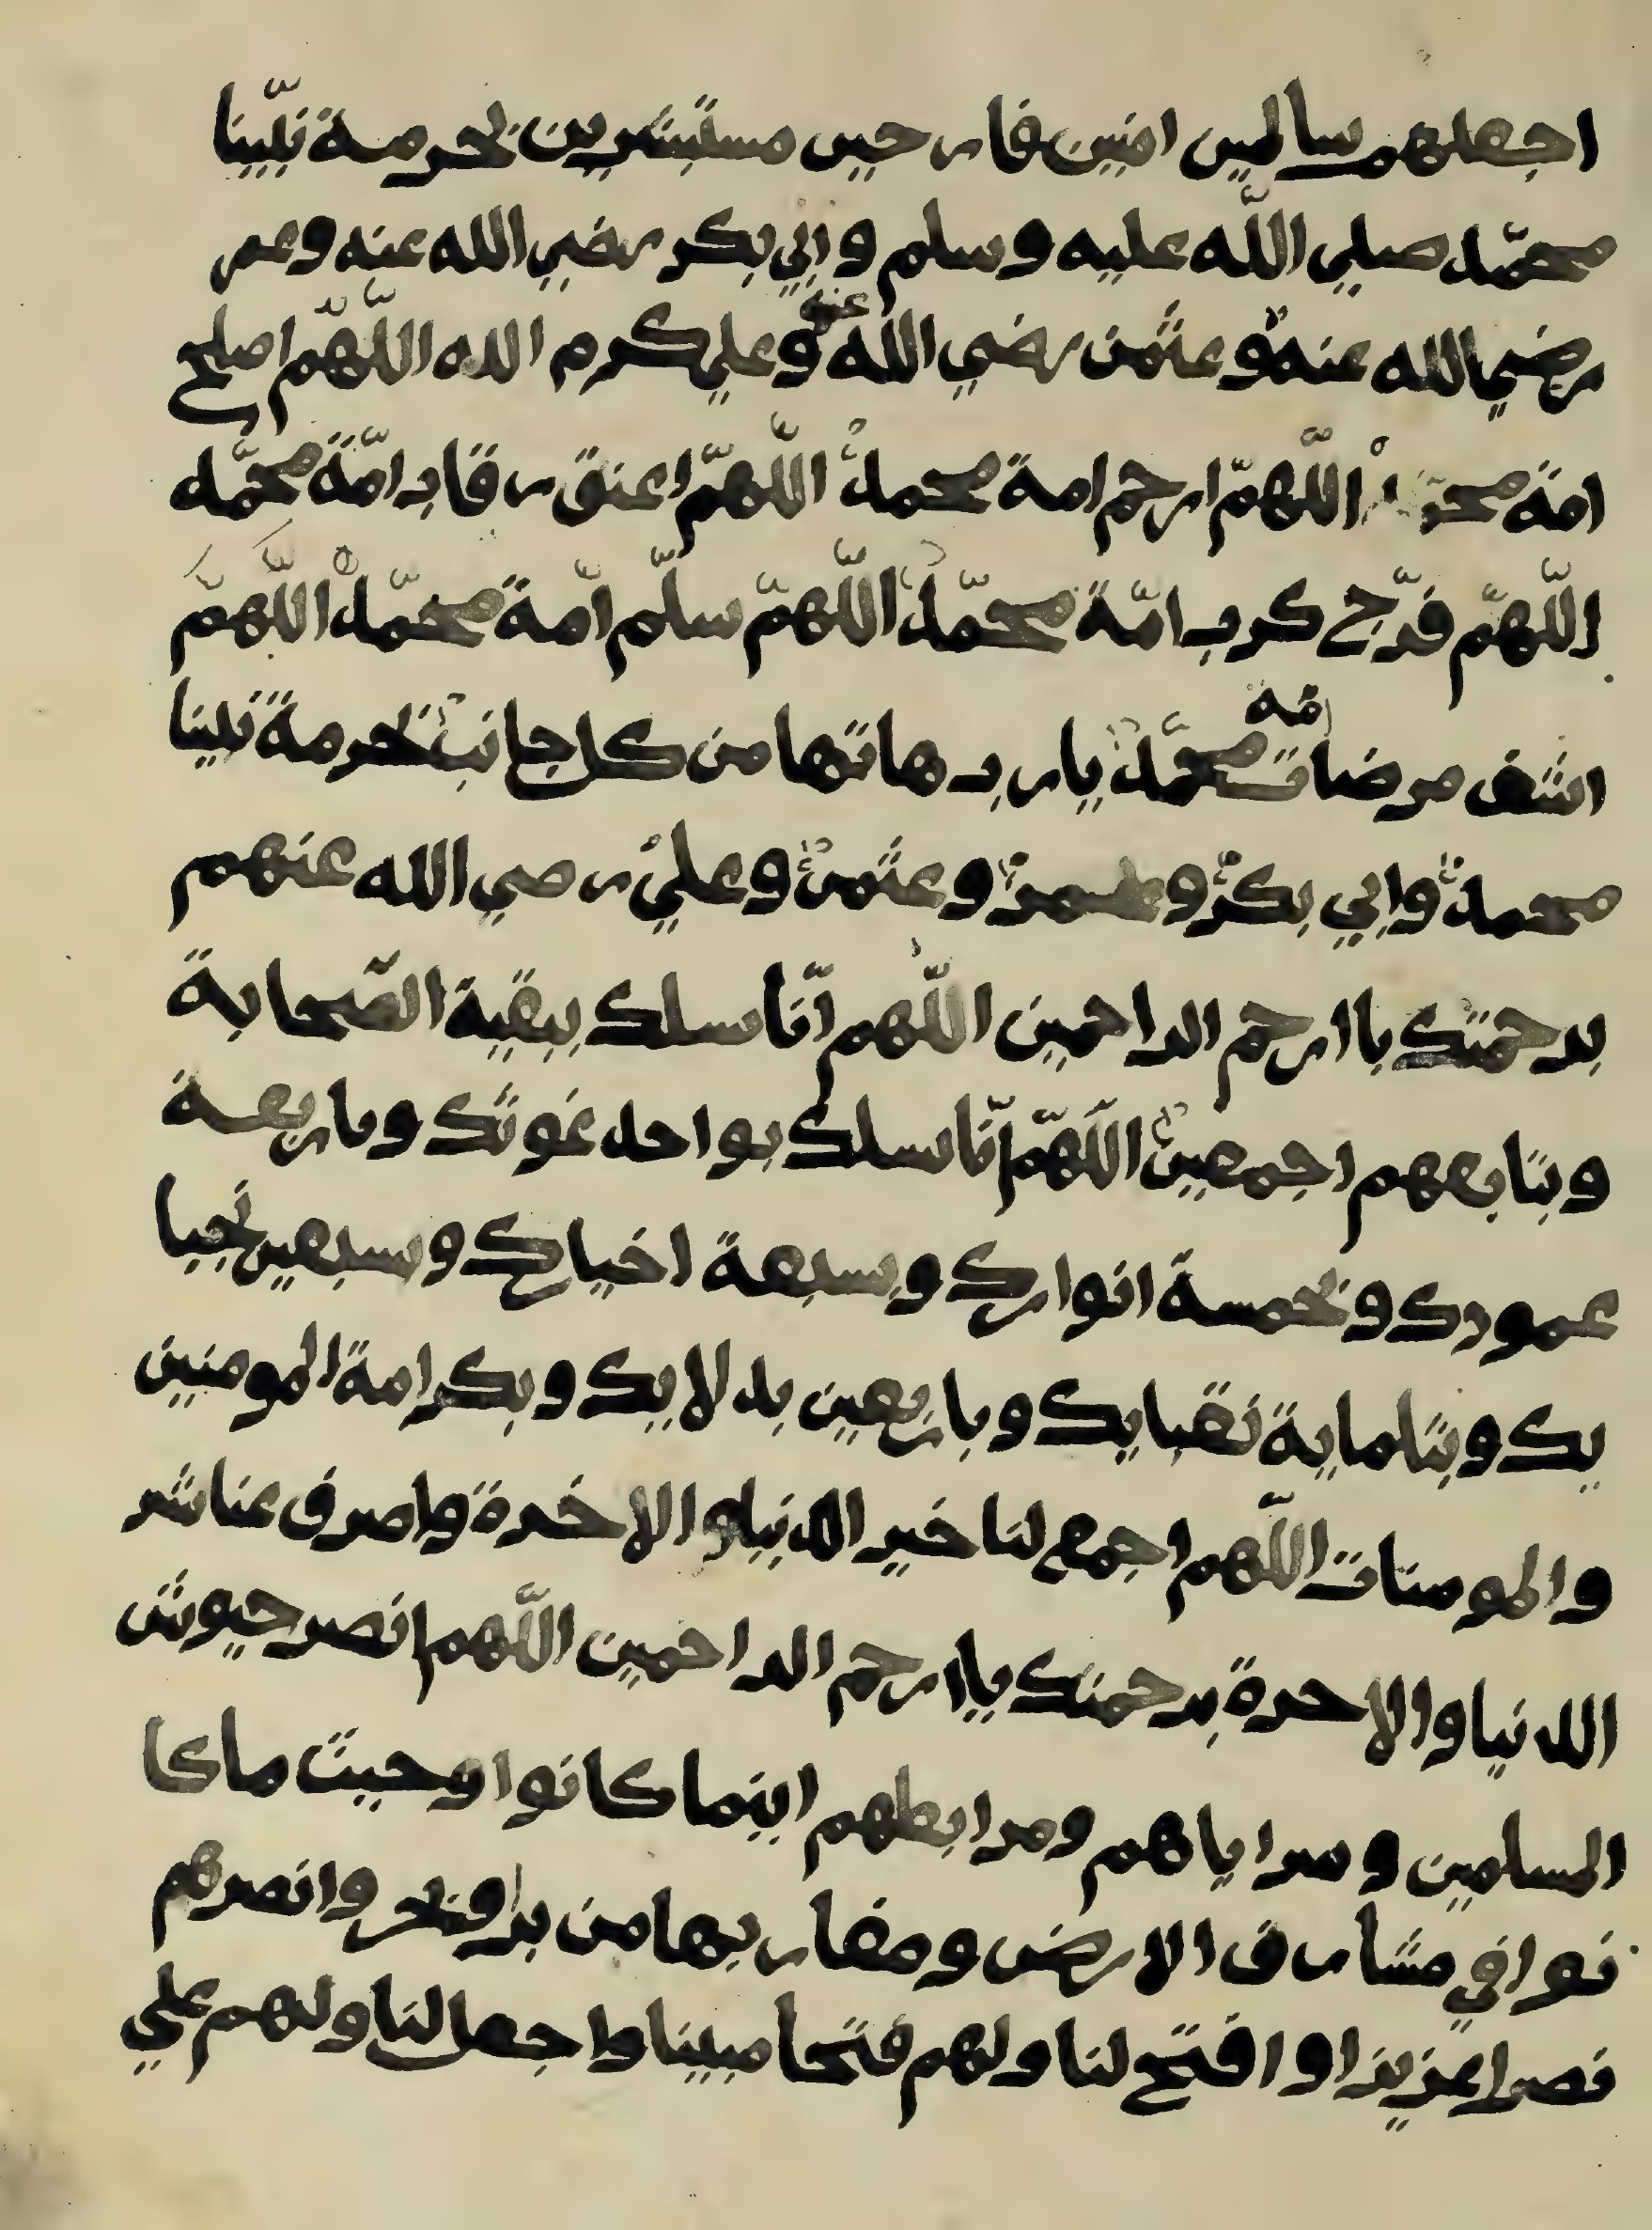 اجعلهم سالمين امنين فارحين مستبشرين بحرمة نبينا
محمّد صلي اللّه عليه وسلم وابي بكر رضي الله عنه وعمر
رضي الله عنه وعثمن رضي الله عنه وعلي كرم الله اللّهمّ اصلح
امة محمد اللّهمّ ارحم امة محمد اللّهمّ اعتق رقاب امّة محمّد
اللّهمّ فرّج كرب امّة محمّد اللّهمّ سلّم امّة محمّد اللّهمّ
اشف مرضات امة محمّد يارب هاتها من كل جانب بحرمة نبينا
محمد وابي بكر وعمر وعثمن وعلي رضي الله عنهم
برحمتك ياارحم الراحمين اللّهم انّا نسلك ببقية الصّحابة
وبتابعهم اجمعين اللّهمّ انّا نسلك بواحد غوثك وباربعة
عمودك وبخمسة انوارك وبسبعة اخيارك وبسبعين نجبا
يك وبثلماية نقبايك وباربعين بدلايك وبكرامة المومنين
والمومنات اللّهم اجمع لنا خير الدنيا والاخرة واصرف عنا شر
الدنيا والاخرة برحمتك ياارحم الراحمين اللّهم انصر جيوش
المسلمين وسراياهم ومرابطهم اينما كانوا وحيث ما كا
نوا في مشارق الارض ومغاربها من بر وبحر وانصرهم
نصرا عزيزا وافتح لنا ولهم فتحا مبينا واجعل لنا ولهم علي